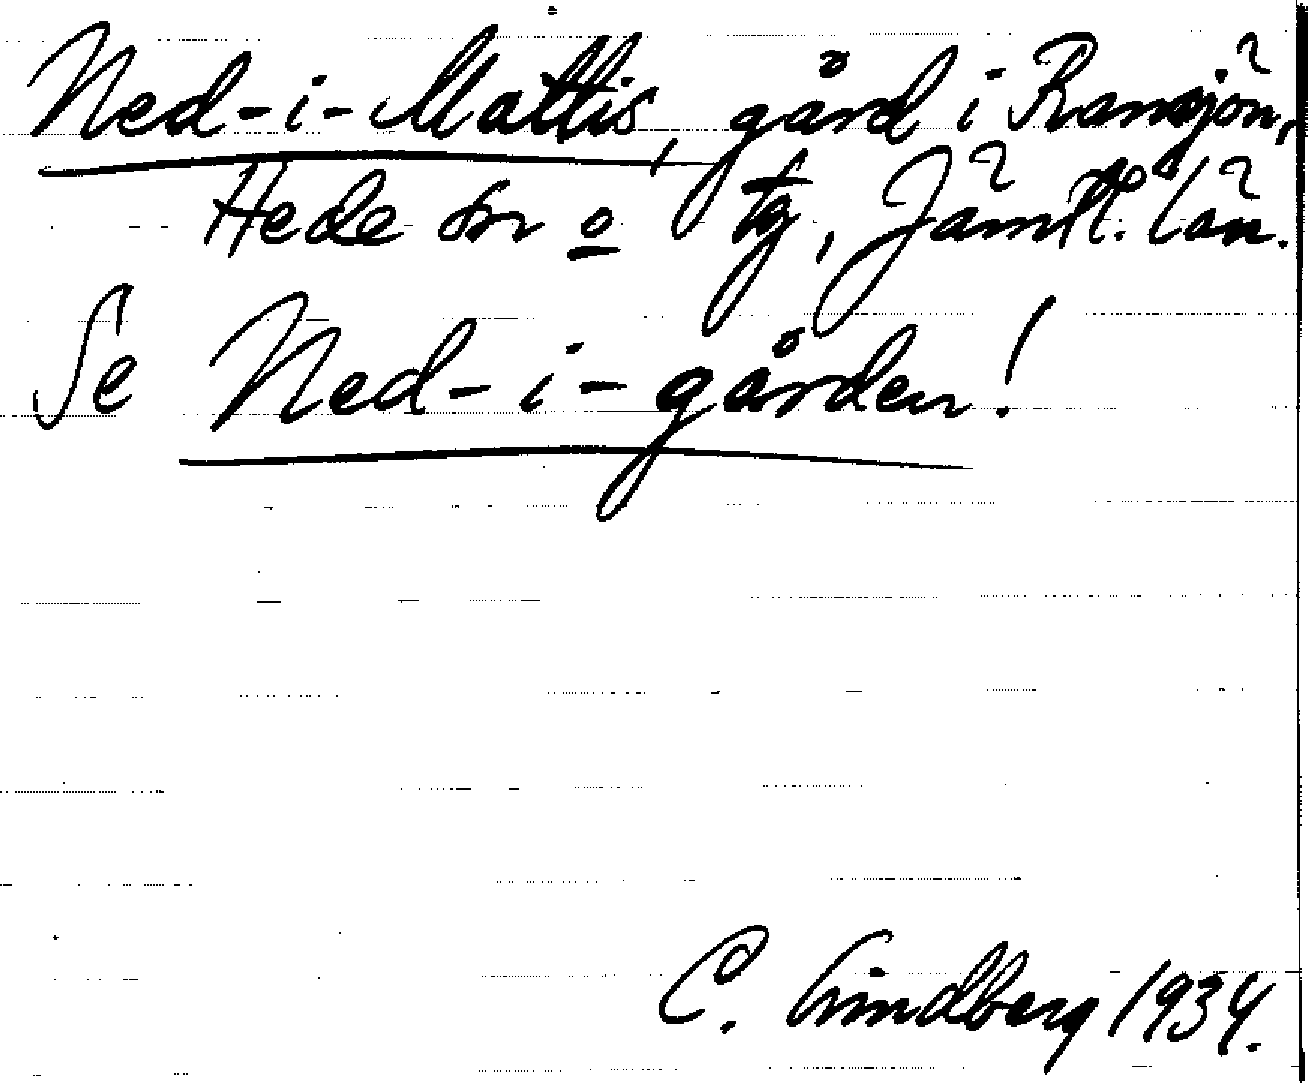 Ned-i-Mattis, gård i Ransjön,
Hede sn o tg, Jämtl. län.
Se Ned-i-gården!
C. Lindberg 1934.